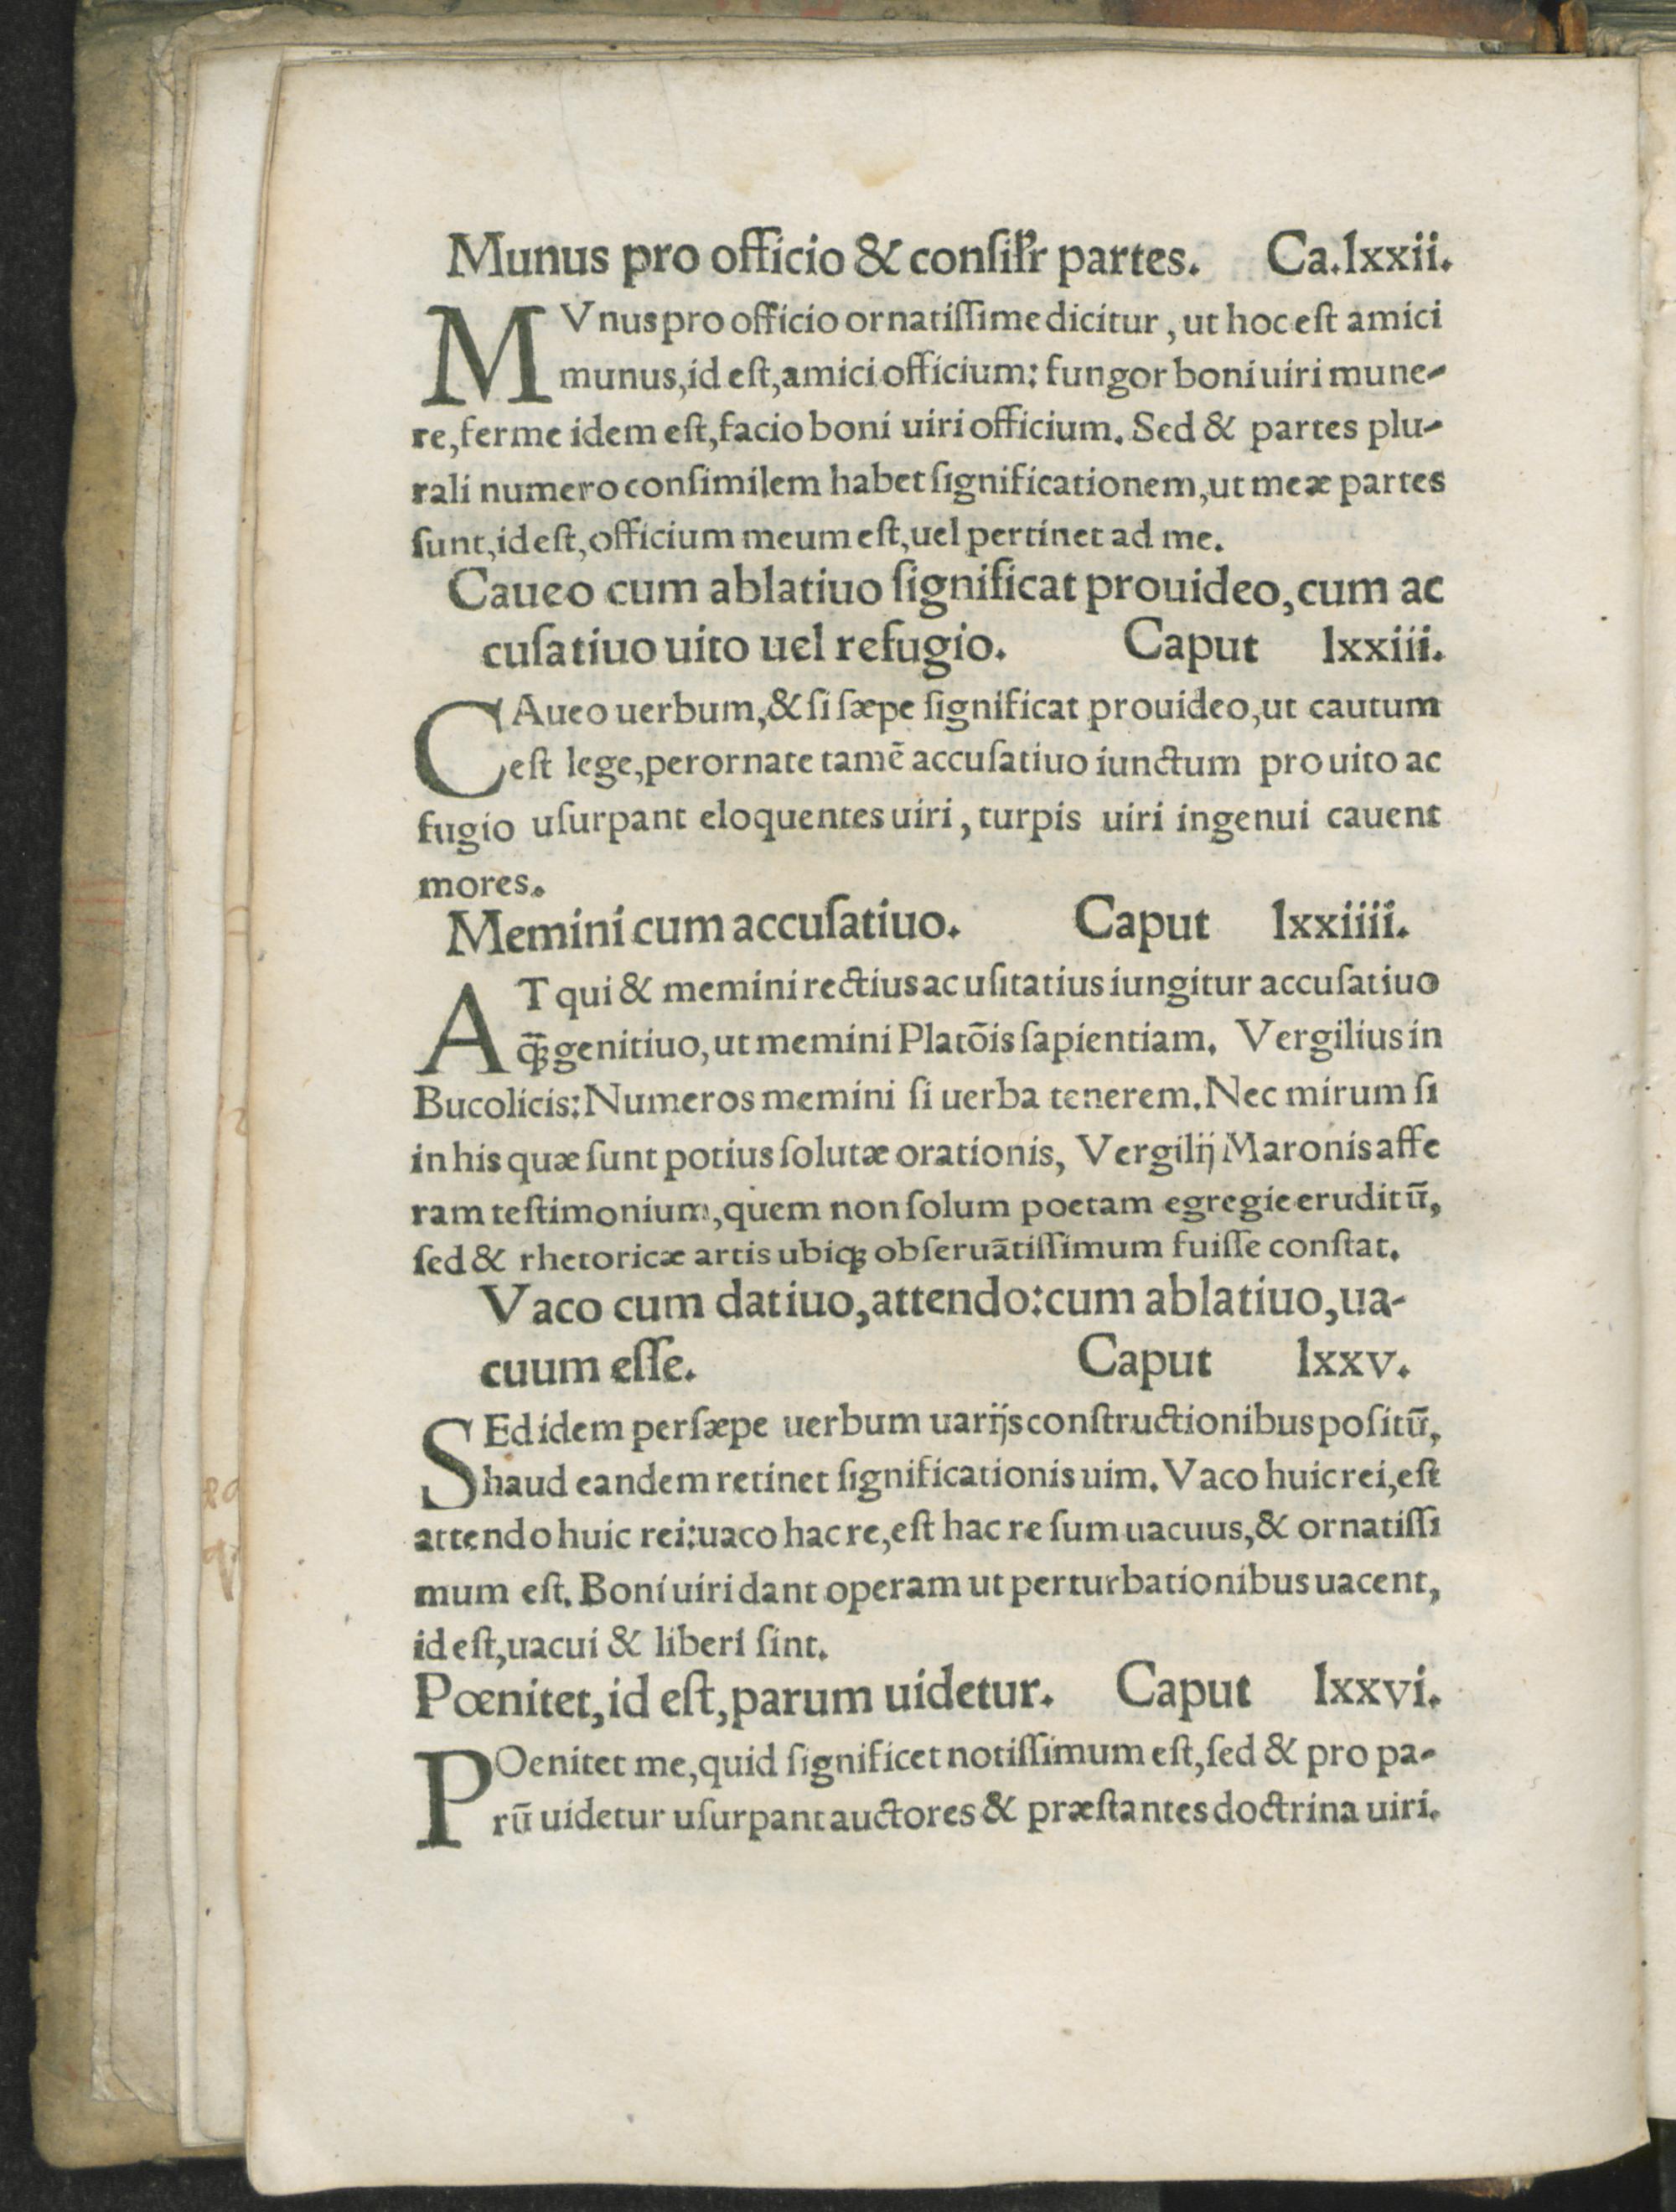 Munus pro officio & consiłr partes. Ca.lxxii.
MVnus pro officio ornatiſſime dicitur, ut hoc eſt amici
munus, id eſt, amici officium: fungor boni uiri mune-
re, ferme idem eſt, facio boni uiri officium. Sed & partes plu-
rali numero conſimilem habet ſignificationem, ut meæ partes
ſunt, id eſt, officium meum eſt, uel pertinet ad me.
Caueo cum ablatiuo ſignificat prouideo, cum ac
cuſatiuo uito uel refugio. Caput lxxiii.
CAueo uerbum, & ſi ſæpe ſignificat prouideo, ut cautum
eſt lege, perornate tamē accuſatiuo iunctum pro uito ac
fugio uſurpant eloquentes uiri, turpis uiri ingenui cauent
mores.
Memini cum accuſatiuo. Caput lxxiiii.
ATqui & memini rectius ac uſitatius iungitur accuſatiuo
q̄ꝫ genitiuo, ut memini Platōis ſapientiam. Vergilius in
Bucolicis: Numeros memini ſi uerba tenerem. Nec mirum ſi
in his quæ ſunt potius ſolutæ orationis, Vergilij Maronis affe
ram teſtimonium, quem non ſolum poetam egregie eruditū,
ſed & rhetoricæ artis ubiqꝫ obſeruātiſſimum fuiſſe conſtat.
Vaco cum datiuo, attendo: cum ablatiuo, ua-
cuum eſſe. Caput lxxv.
SEd idem perſæpe uerbum uarijs conſtructionibus poſitū,
haud eandem retinet ſignificationis uim. Vaco huic rei, eſt
attendo huic rei: uaco hac re, eſt hac re ſum uacuus, & ornatiſſi
mum eſt. Boni uiri dant operam ut perturbationibus uacent,
id eſt, uacui & liberi ſint.
Pœnitet, id eſt, parum uidetur. Caput lxxvi.
POenitet me, quid ſignificet notiſſimum eſt, ſed & pro pa-
rū uidetur uſurpant auctores & præſtantes doctrina uiri.